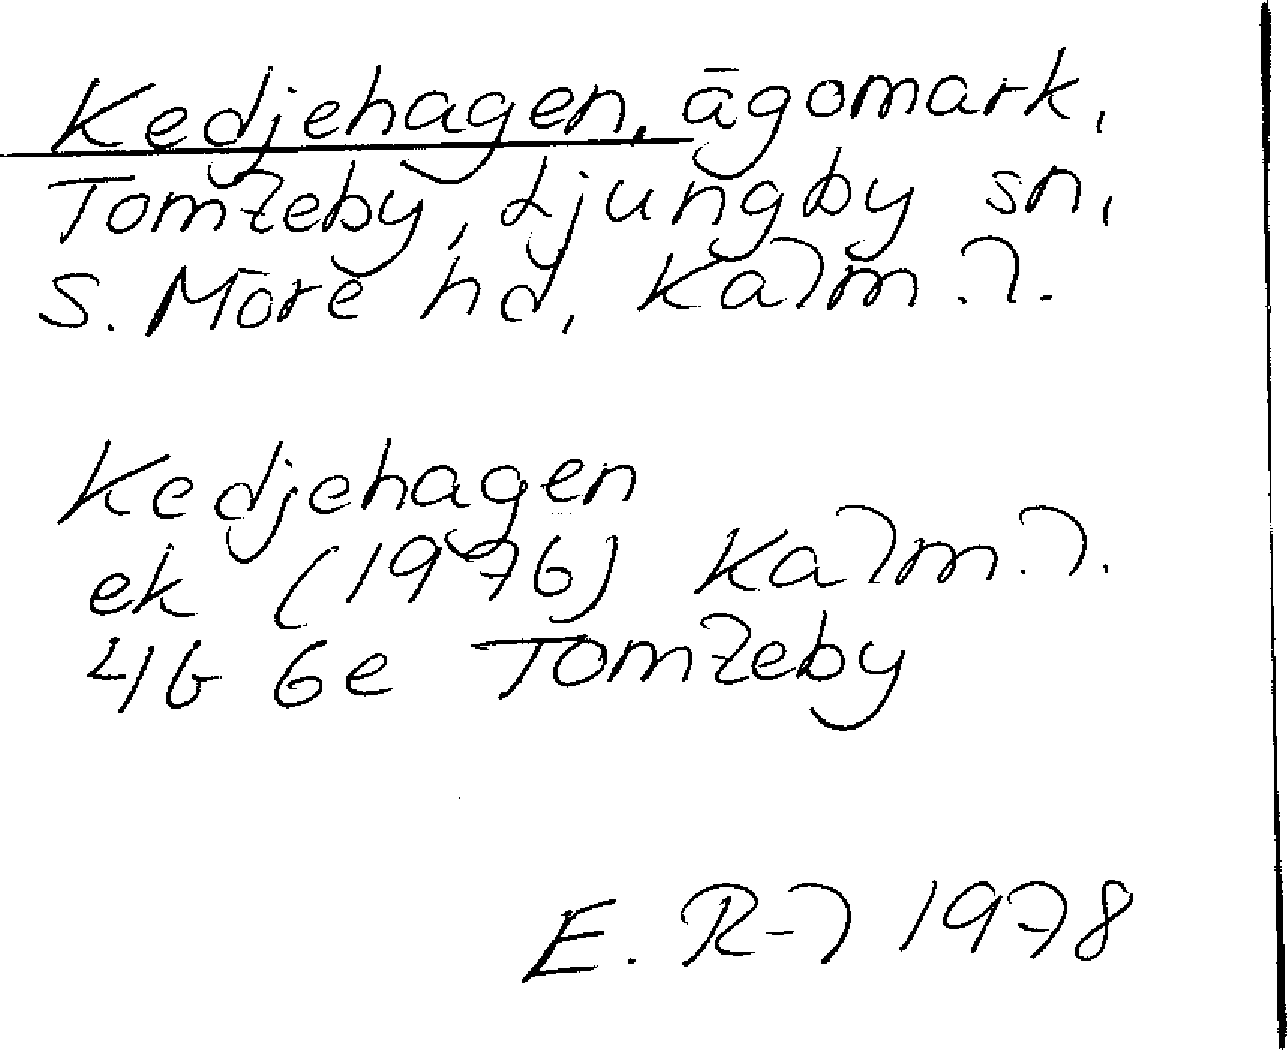 Kedjehagen, ägomark,
Tomteby, Ljungby sn,
S. Möre hd, Kalm. l.
Kedjehagen
ek (1976) Kalm. l.
4G 6e Tomteby
E. R-l 1978